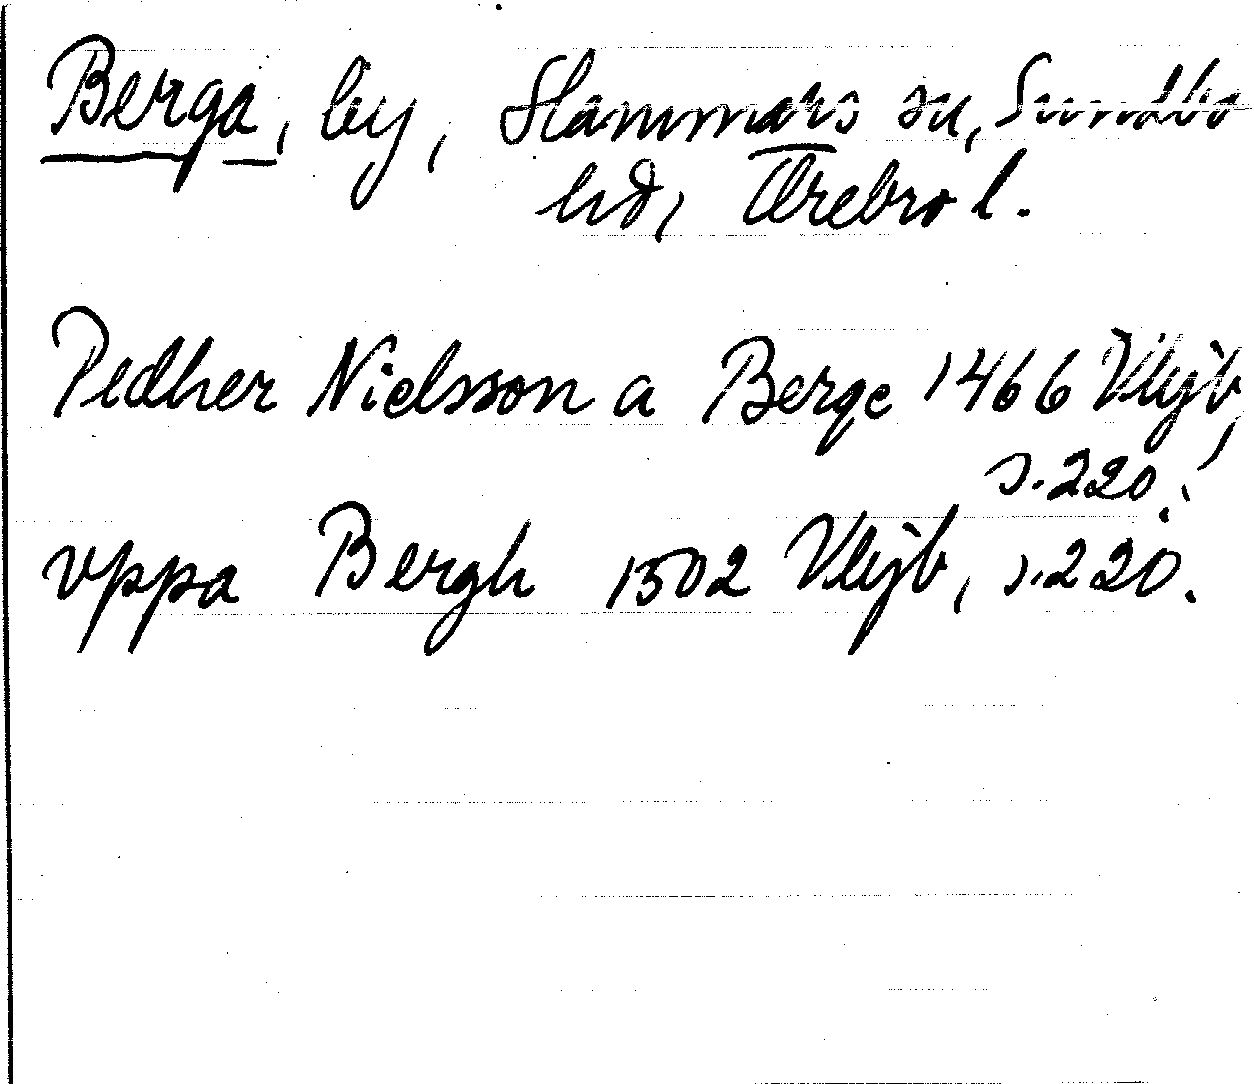 Berga, by, Hammars sn, Sundbo
hd, Örebro l.
Pedher Nielsson a Berge 1466 Vkjb,
s. 220.
vppa Bergh 1502 Vkjb, s. 220.